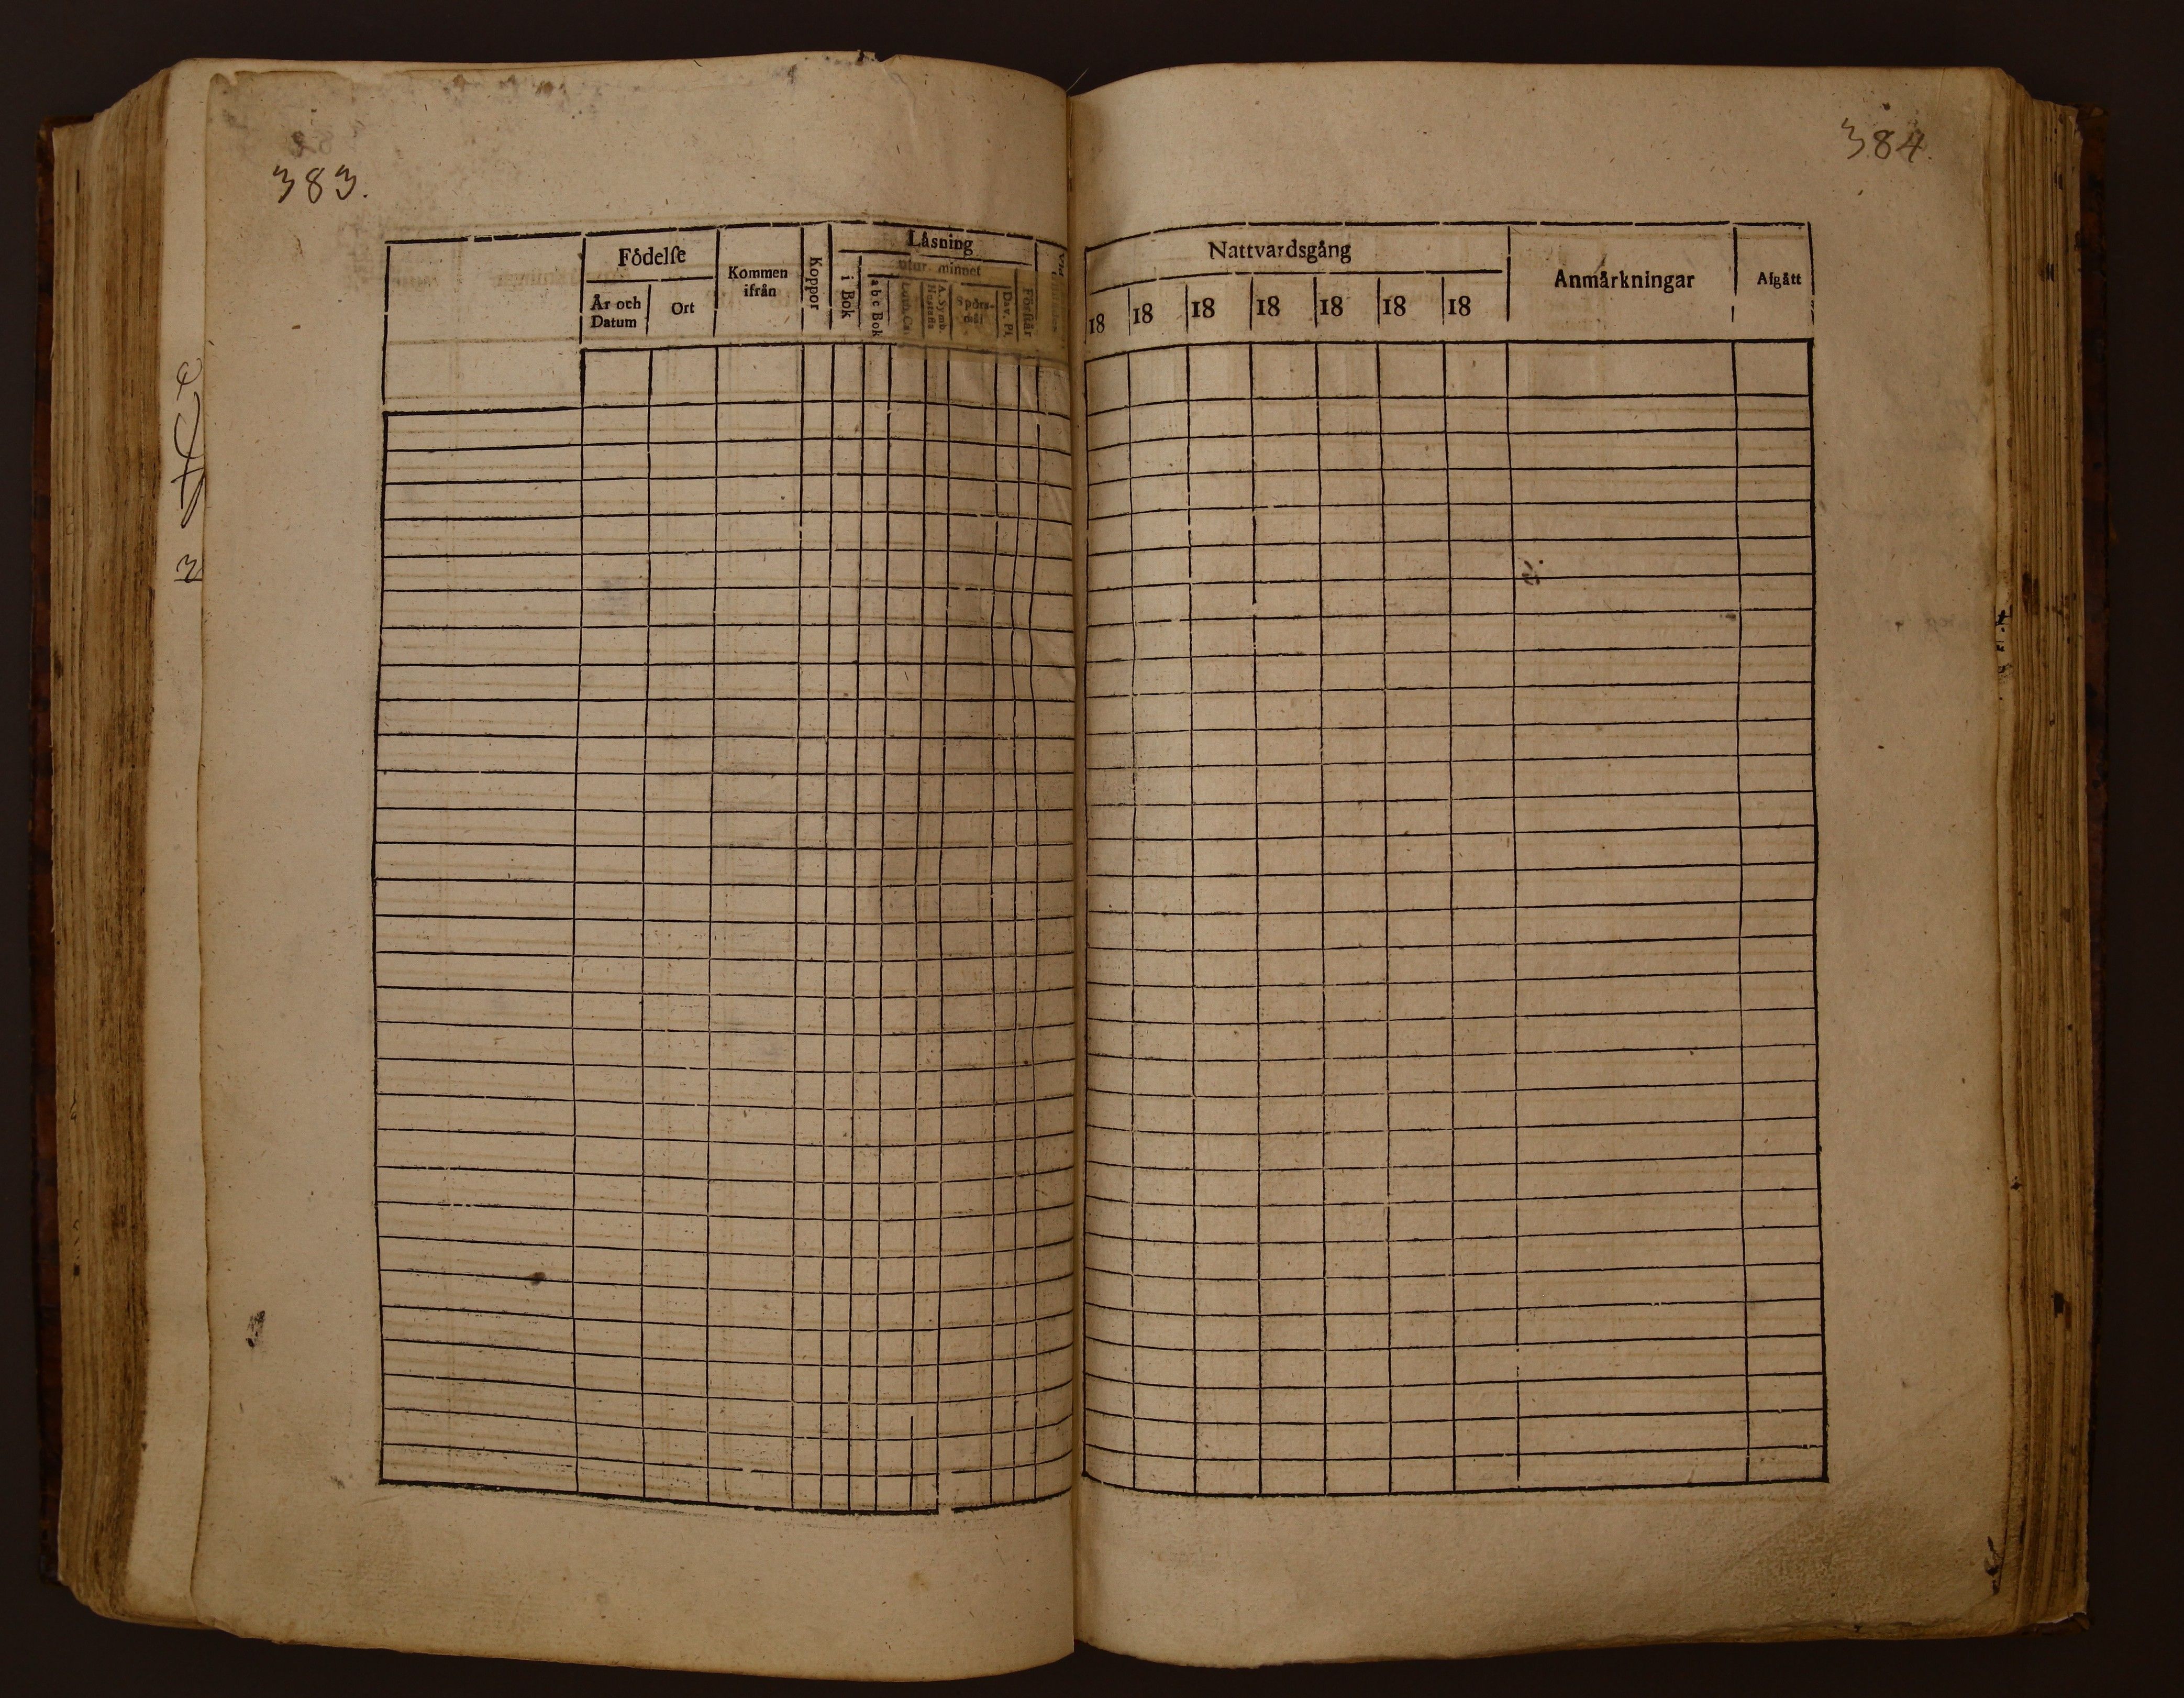 383.
Födelſe
År och
Datum
Ort
Kommen
ifrån
Koppor
Läsning
i Bok
utur minnet
abc Bok
Luth. Ca.
A. Symb.
Huſtafla
Spörs-
mål
Dav. Pſ.
Förſtår
384.
Nattvardsgång
18 18 18 18 18 18 18
Anmärkningar
Afgått